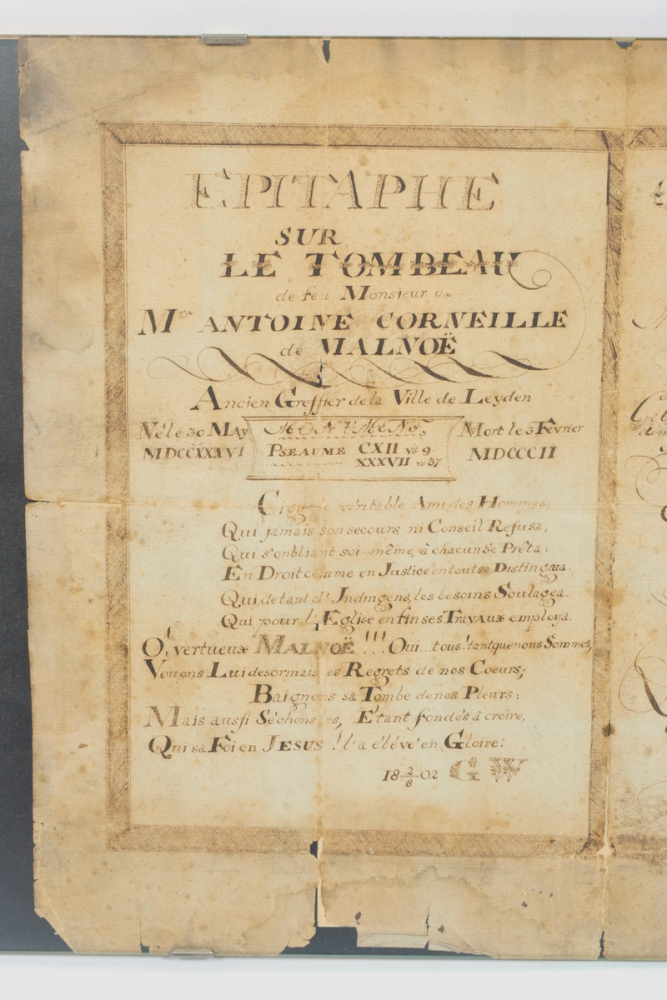 EPITAPHE
SUR
LE TOMBEAU
de feu Monsieur
Mr ANTOINE CORNEILLE
de MALNOË
Ancien Greffier de la Ville de Leyden
Né le 30 May
MDCCXXXVI
PSEAUME CXII vs 9
XXXVII vs 37
Mort le 3 Février
MDCCCII
Ci git le véritable Ami des Hommes,
Qui jamais son secours, ni Conseil Refusa,
Qui s'oubliant soi-même, à chacun se Prêta:
En Droit comme en Justice en tout se Distingua.
Qui de tant d'Indingens, les besoins Soulagea.
Qui pour l'Eglise enfin ses Travaux employa.
O! vertueux MALNOË!!! Oui.. tous! tant que nous Sommes,
Vouons Lui desormais les Regrets de nos Coeurs;
Baignons sa Tombe de nos Pleurs:
Mais aussi Séchons les, Etant fondés à croire,
Qui sa Foi en JESUS! l'a élévé en Gloire!
18 2/8 02 GW